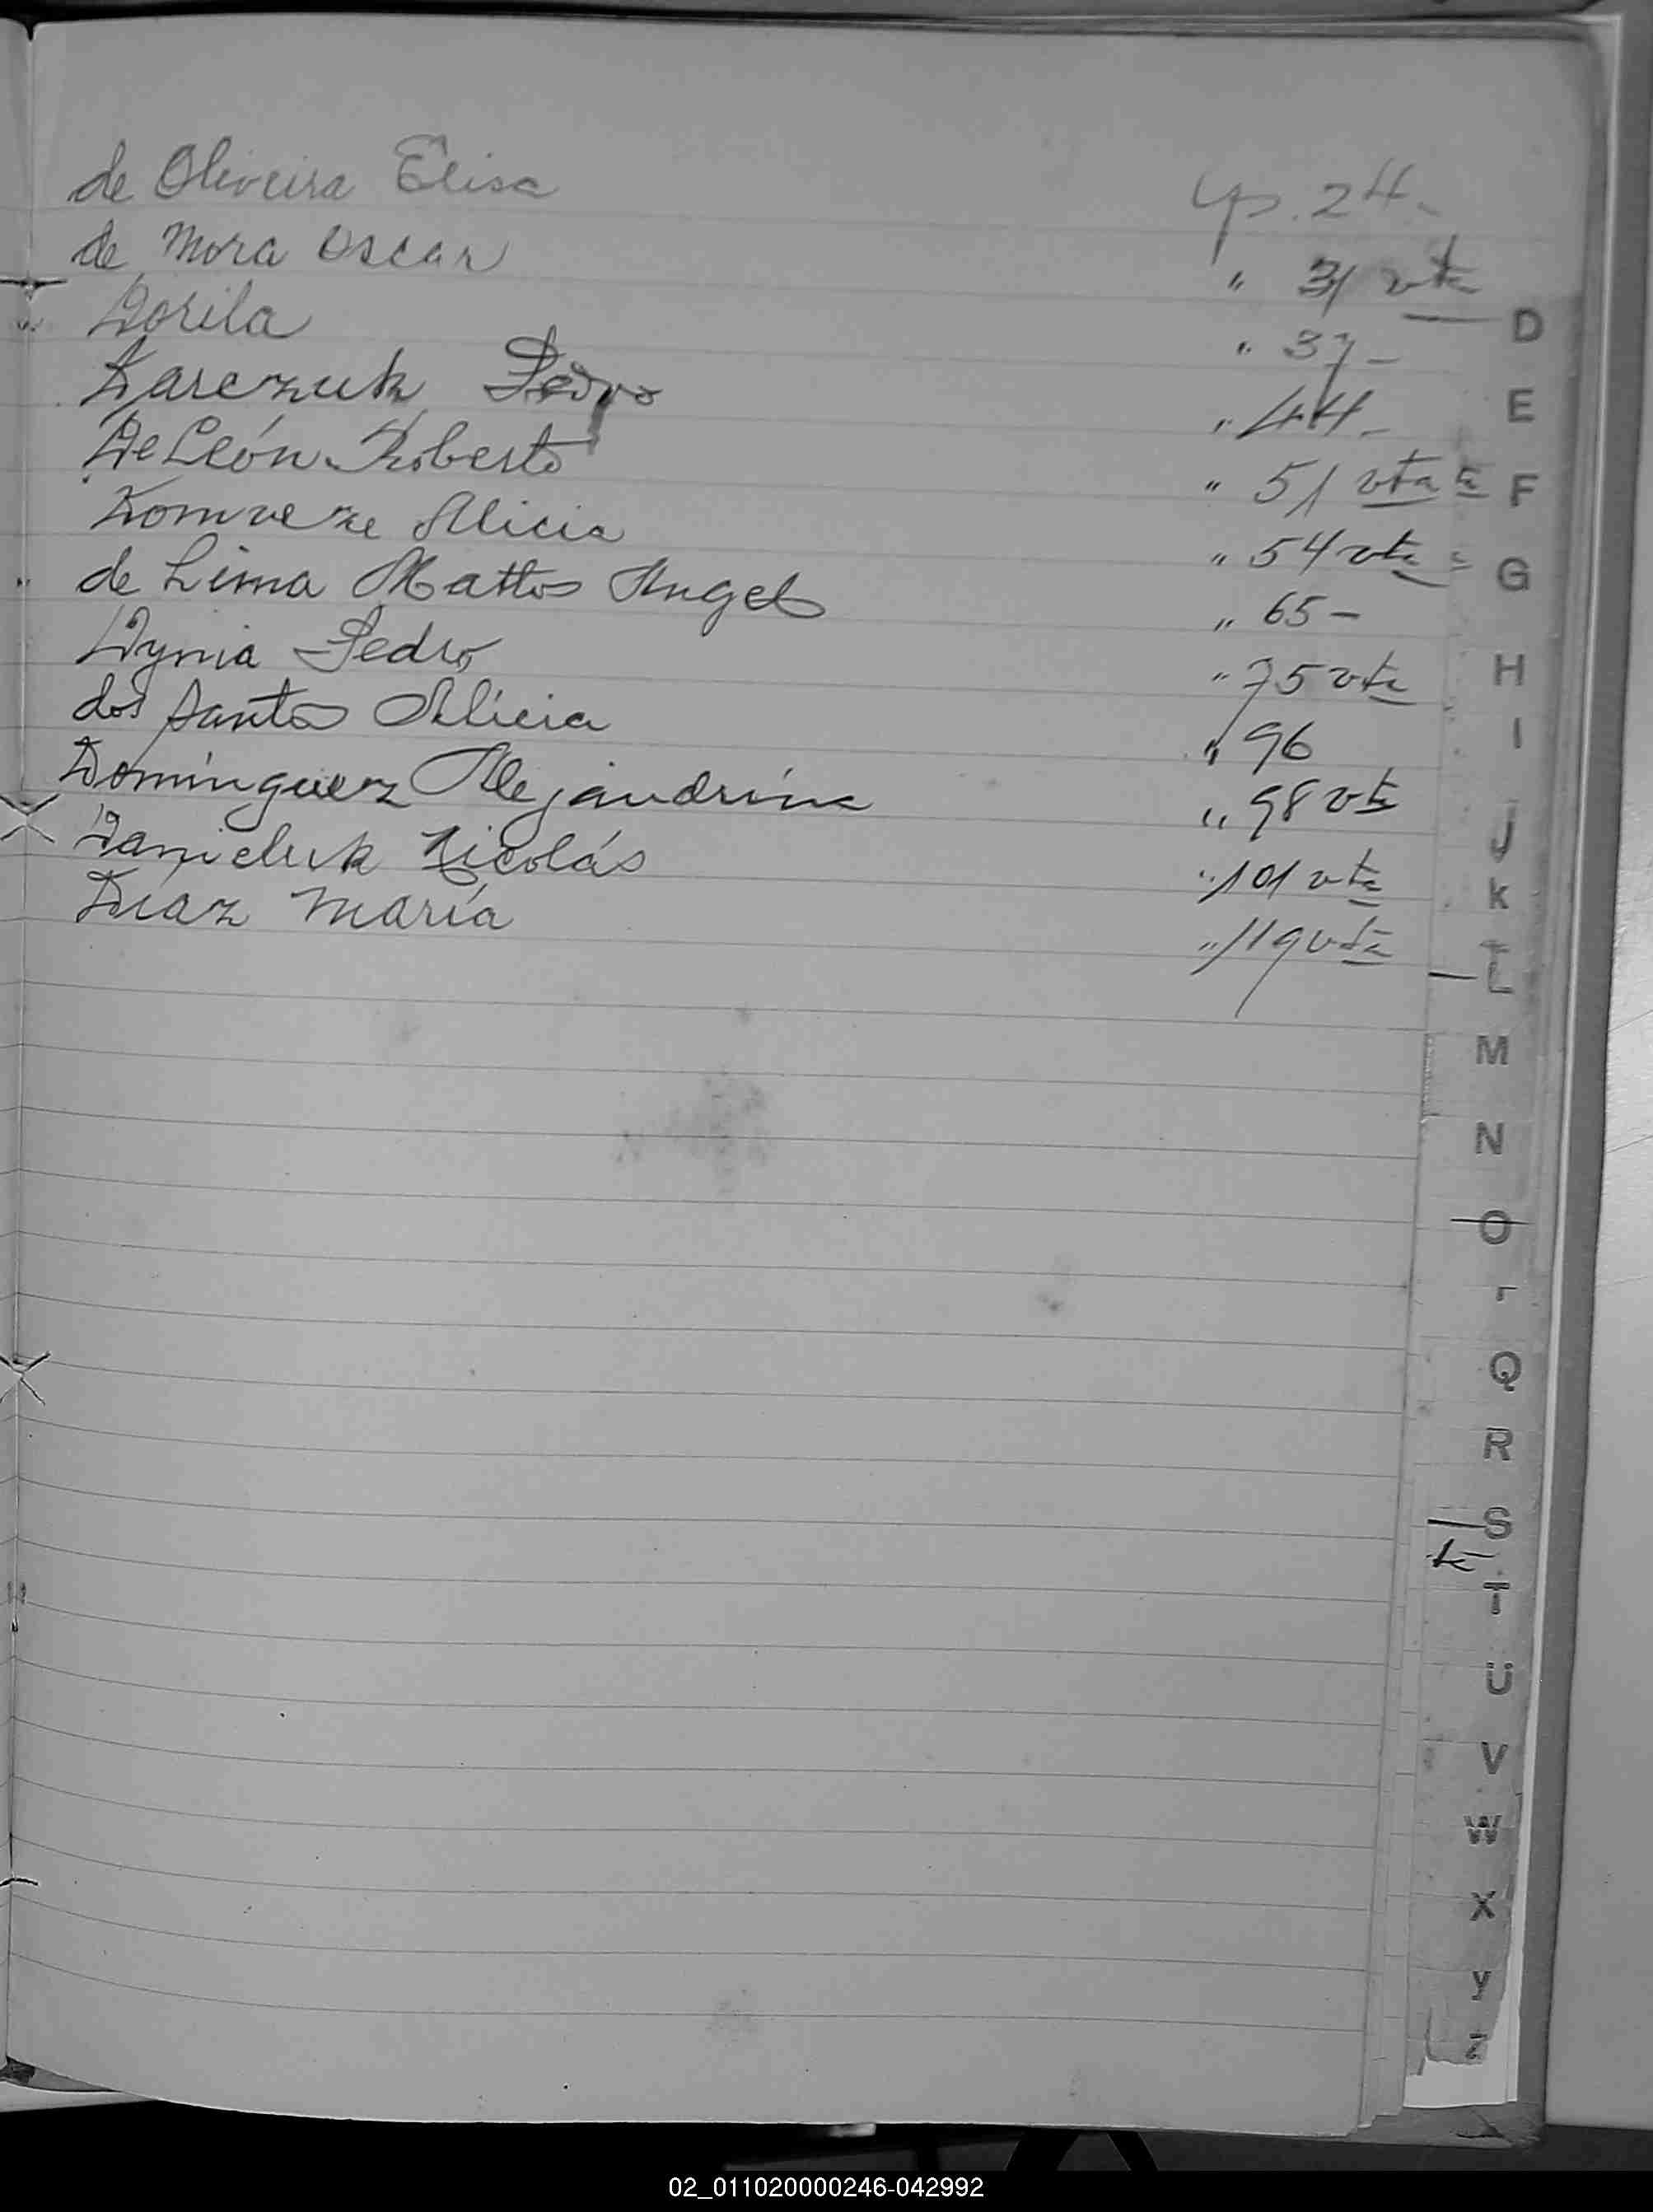 de Oliveira Elisa fp. 24-
de Mora Oscar " 31 vta
Dorila " 37-
Darczuk Pedro " 44-
De León Roberto " 51 vta
Alicia " 54 vta
de Lima Mattos Angel " 65-
Dynia Pedro " 75 vta
dos Santos Alicia " 96
Domínguez Alejandrina " 98 vta
Danieluk Nicolás " 101 vta
Díaz María " 119 vta
D
E
F
G
H
I
J
K
L
M
N
O
Q
R
S
T
U
V
W
X
Y
Z
02_011020000246-042992